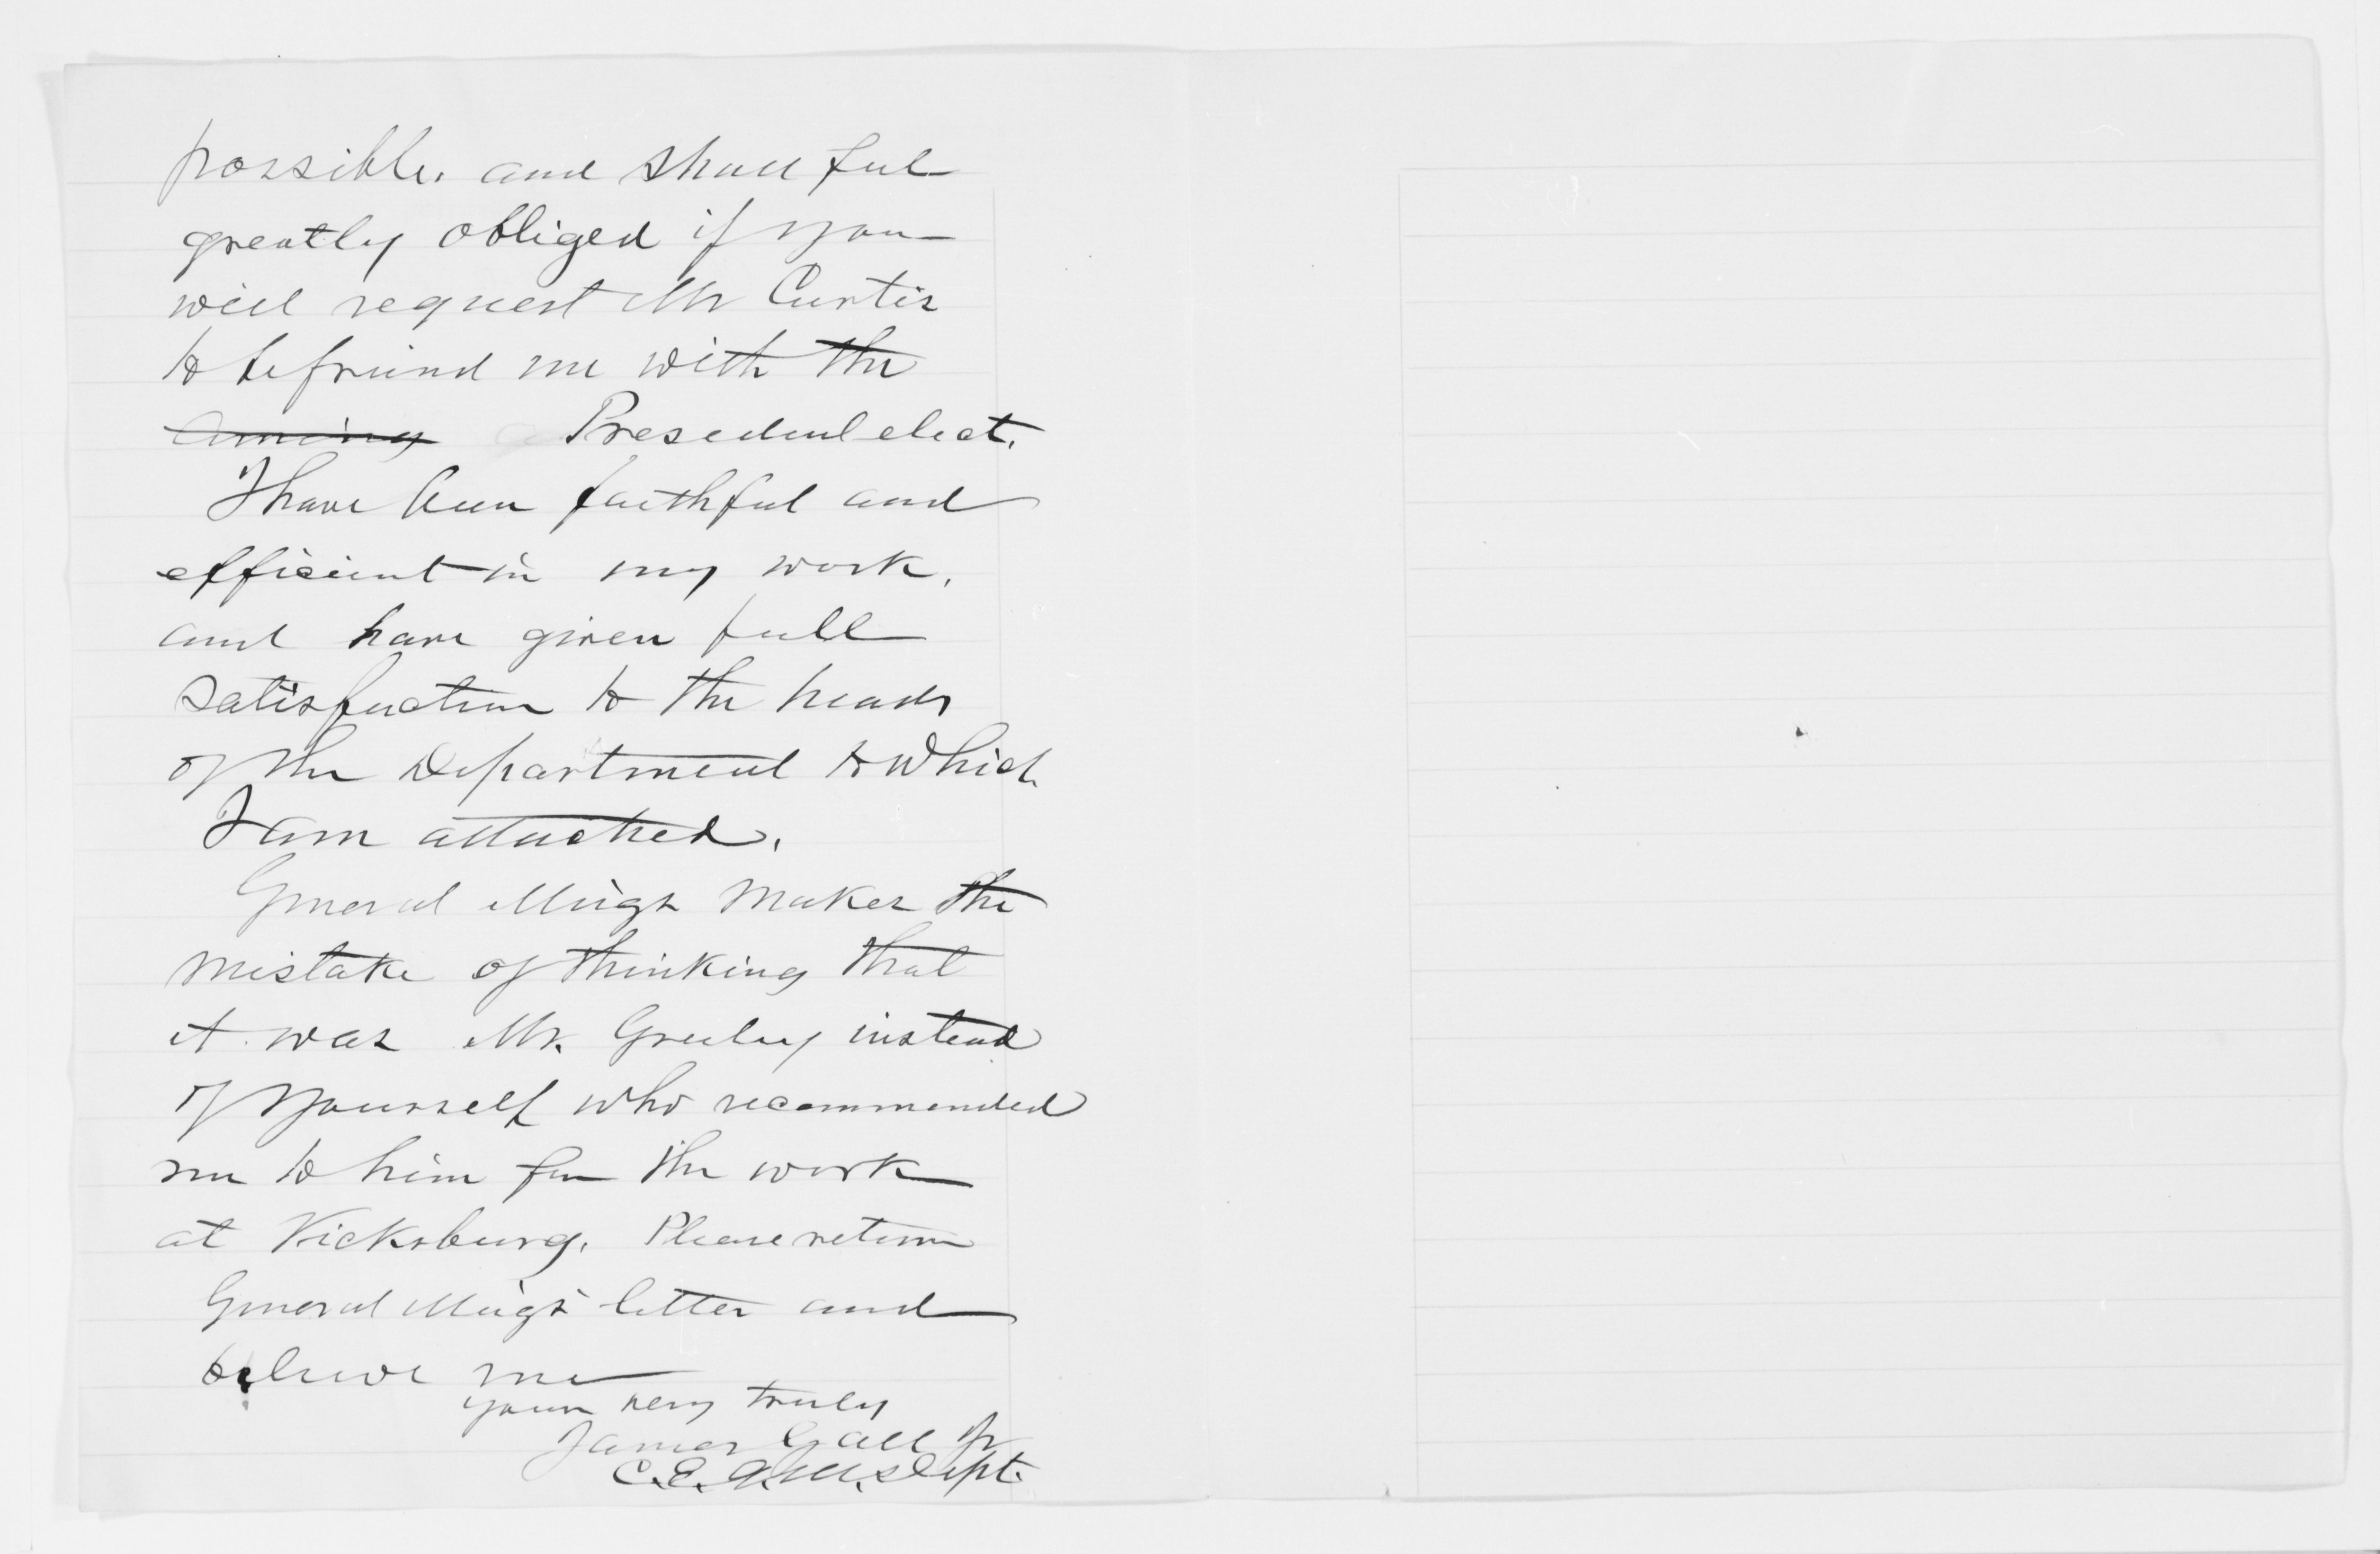 possible. and shall feel
greatly obliged if you
will request Mr Curtis
to befriend me with the
coming President elect.
I have been faithful and
efficient in my work,
and have given full
satisfaction to the heads
of the Department to which
I am attached.
General Meigs makes the
mistake of thinking that
it was Mr. Greeley instead
of yourself who recommended
me to him for the work
at Vicksburg. Please return
General Meigs letter and
believe me
yours very truly
James Gall Jr
C.E. Q.M.s Dept.